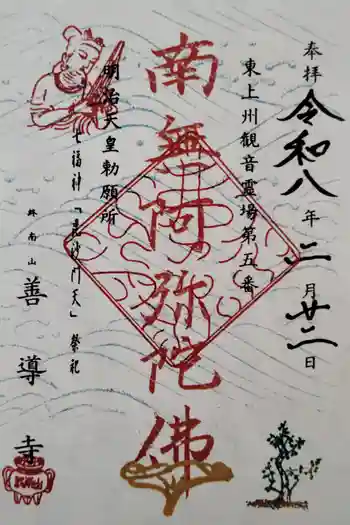 奉拝
令和八年二月廿二日
東上州観音霊場第五番
南無阿弥陀佛
明治天皇勅願所
七福神「毘沙門天」祭祀
終南山
善導寺